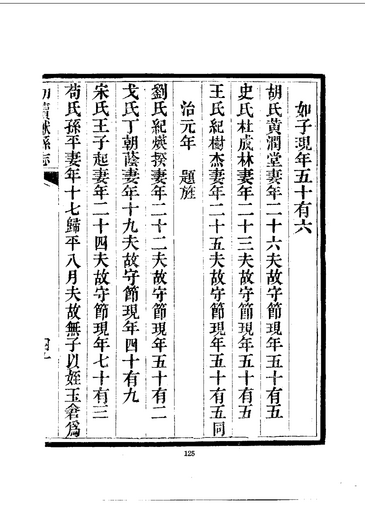 如子現年五十有六
胡氏黃潤堂妻年二十六夫故守節現年五十有五
史氏杜成林妻年二十三夫故守節現年五十有五
王氏紀樹杰妻年二十五夫故守節現年五十有五同
治元年 題旌
劉氏紀煐揆妻年二十二夫故守節現年五十有二
戈氏丁朝蔭妻年十九夫故守節現年四十有九
宋氏王子起妻年二十四夫故守節現年七十有三
荀氏孫平妻年十七歸平八月夫故無子以姪玉倉為
獻縣志
125